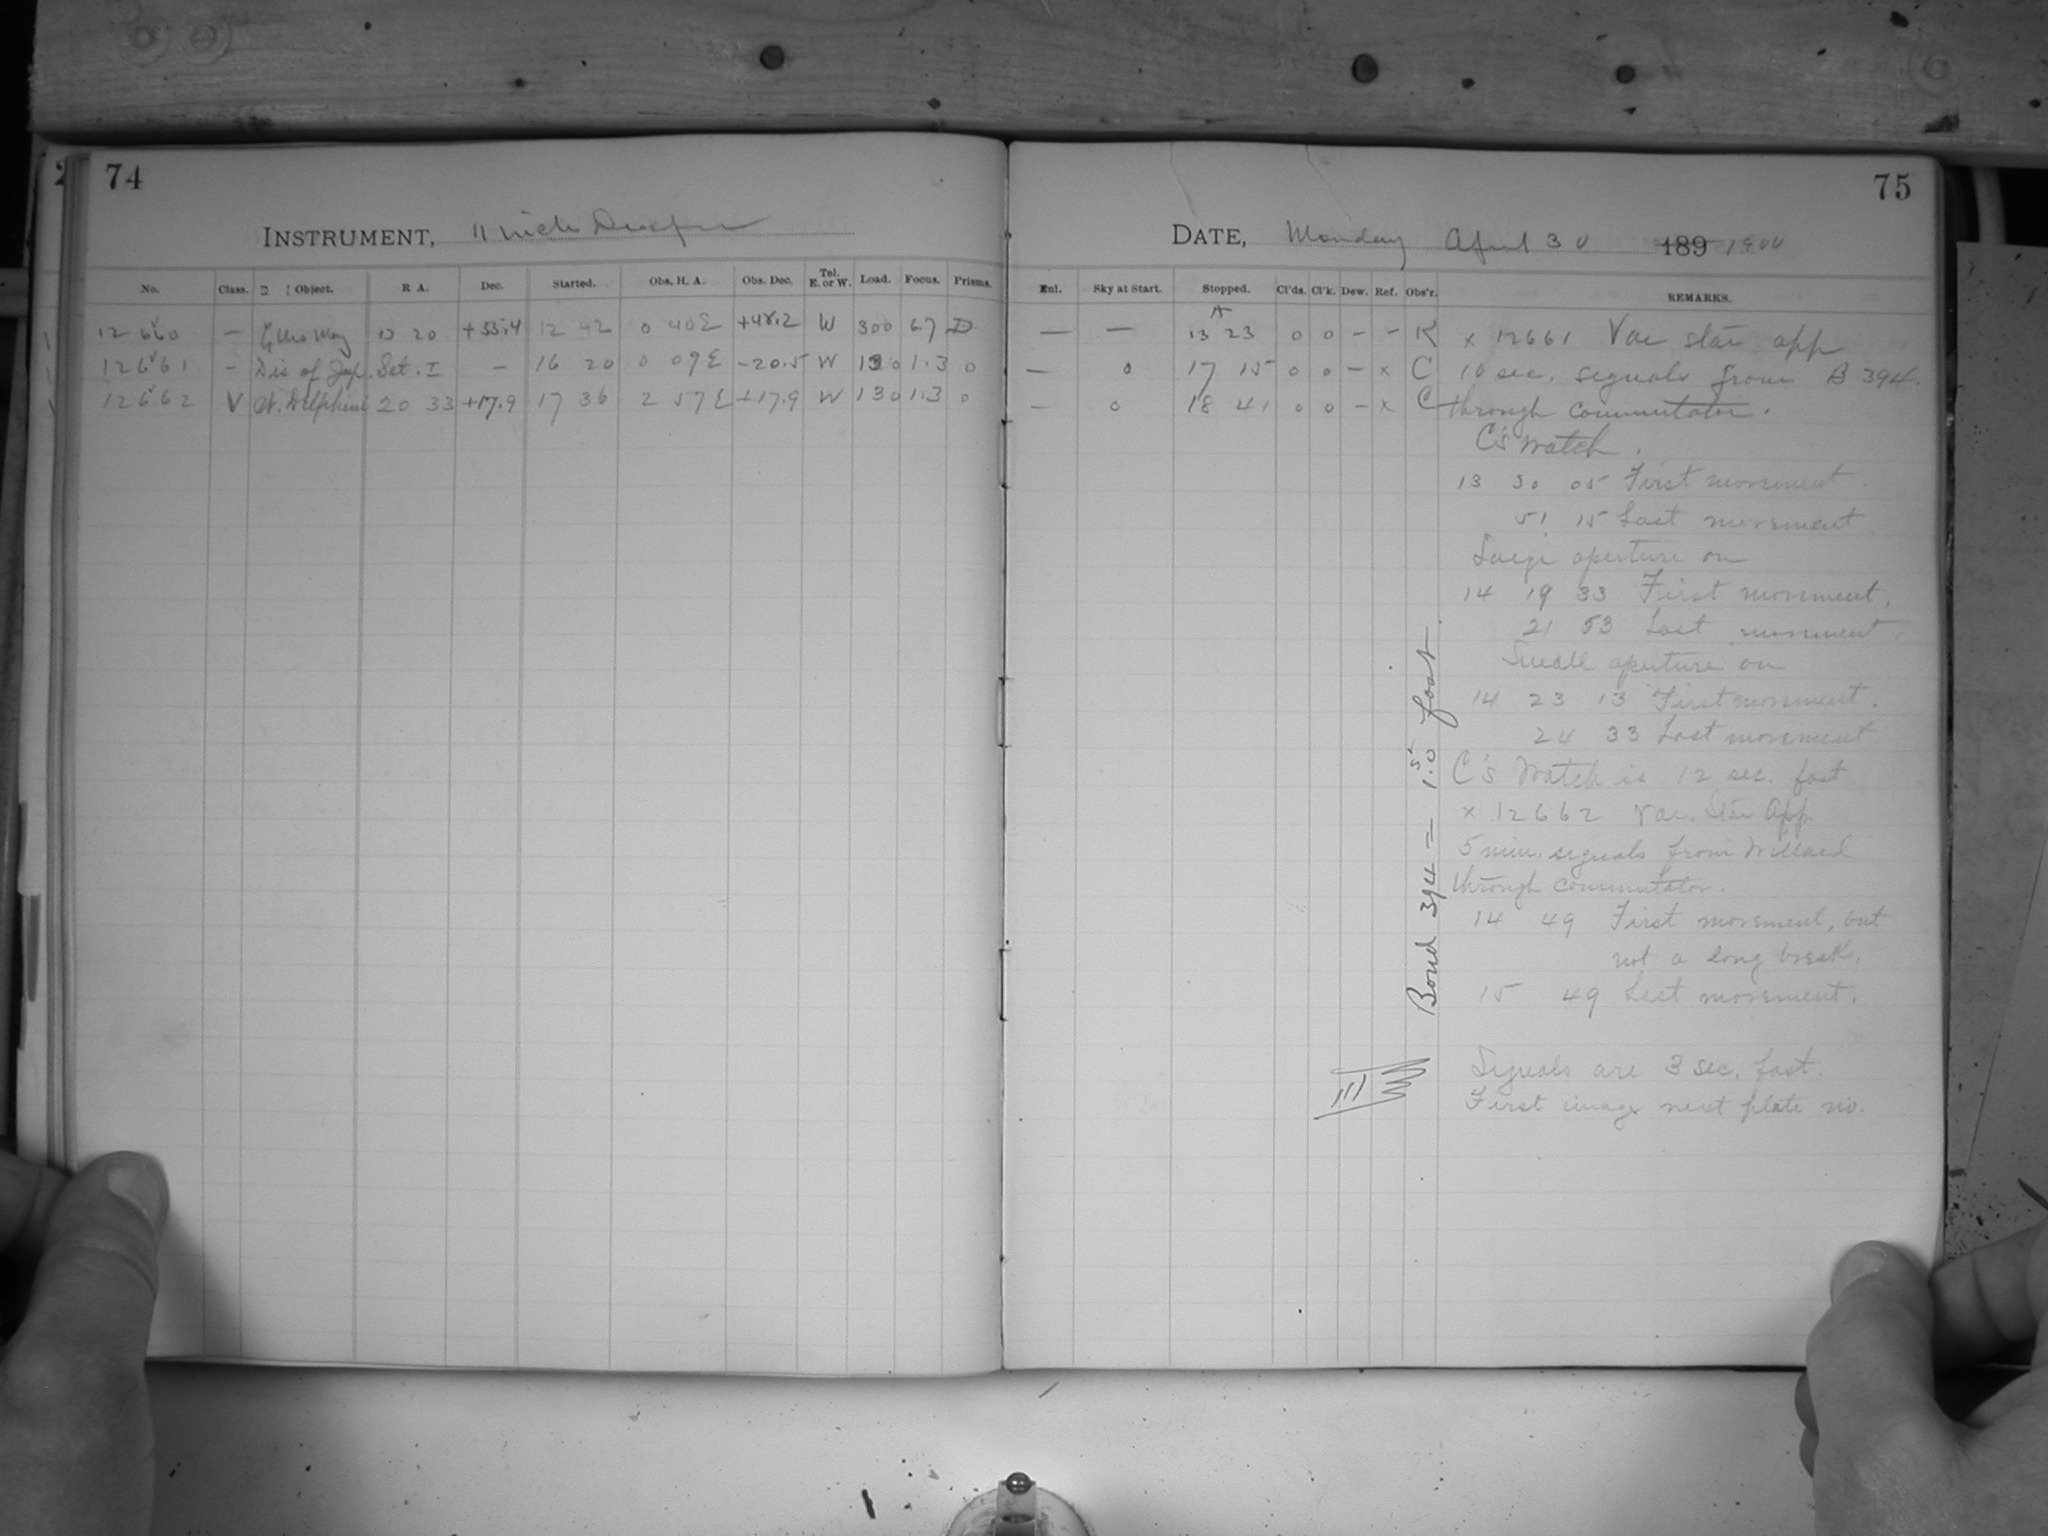 74
INSTRUMENT, 11 inch Draper
No. Class. Object. R A. Dec. Started. Obs. H. A. Obs. Dec. Tel. E. or W. Load. Focus. Prisms.
12660 — 13 20 +55.4 12 42 0 40E +48.2 W 300 6.7 D
12661 – Dis of Jap. Sat. I — 16 20 0 09E -20.5 W 130 1.3 0
12662 V W. Delphini 20 33 +17.9 17 36 2 57E +17.9 W 130 1.3 0
75
DATE, Monday April 30 189 1900
Enl. Sky at Start. Stopped. Cl'ds. Cl'k. Dew. Ref. Obs'r. REMARKS.
— — 13 23 0 0 – – K x 12661 Var star app
— 0 17 15 0 0 – x C 10 sec. signals from B 394.
— 0 18 41 0 0 – x C through commutator.
C's watch.
13 30 05 First movement
51 15 Last movement.
Large aperture on
14 19 33 First movement.
21 53 Last movement.
Small aperture on
14 23 13 First movement.
24 33 Last movement
C's Watch is 12 sec. fast
x 12662 Var. Star App.
5 min. signals from Willard
through commutator.
14 49 First movement, but
not a long break.
15 49 Last movement.
Signals are 3 sec. fast.
First image next plate no.
Bond 394 = 1.0 s fast.
III